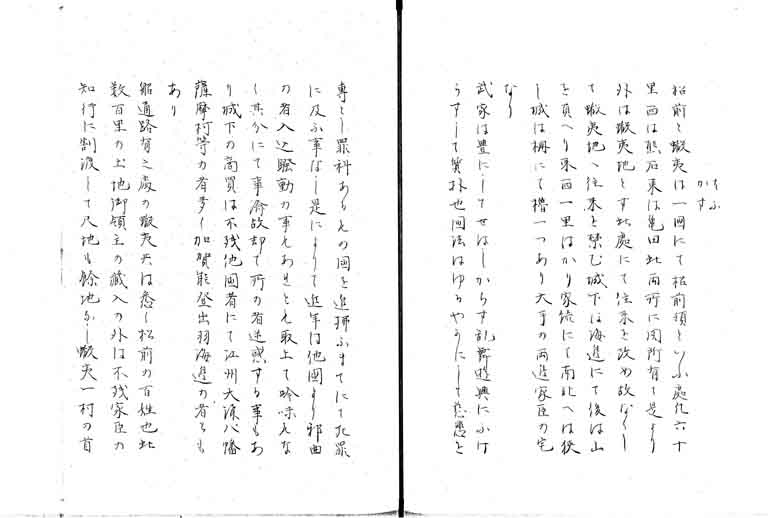 松前と蝦夷は一国にて松前領といふ處凡六十
里西は熊石東は亀田此両所に関所有て是より
外は蝦夷地とす此處にて往来を改め故なくし
て蝦夷地へ往来を禁む城下は海邉にて後は山
を負へり東西一里はかり家続にて南北へは狭
し城は柵にて櫓一つあり大手の両邉家臣の宅
なり
武家は豊にしてせはしからす乱舞遊興にふけ
らすして質朴也国法はゆるやかにして慈悲を
専とし罪科あるもの国を追拂ふまてにて死罪
に及ふ事なし是によりて近年は他国より邪曲
の者入込騒動の事もあれとも取上て吟味もな
し其分にて事済故却て所の者迷惑する事もあ
り城下の商買は不残他国者にて江州大溝八幡
薩摩村等の者多し加賀能登出羽海邉の者も
あり
船通路有之處の蝦夷共は悉く松前の百姓也此
数百里の土地御領主の蔵入の外は不残家臣の
知行に割渡して尺地も餘地なし蝦夷一村の首